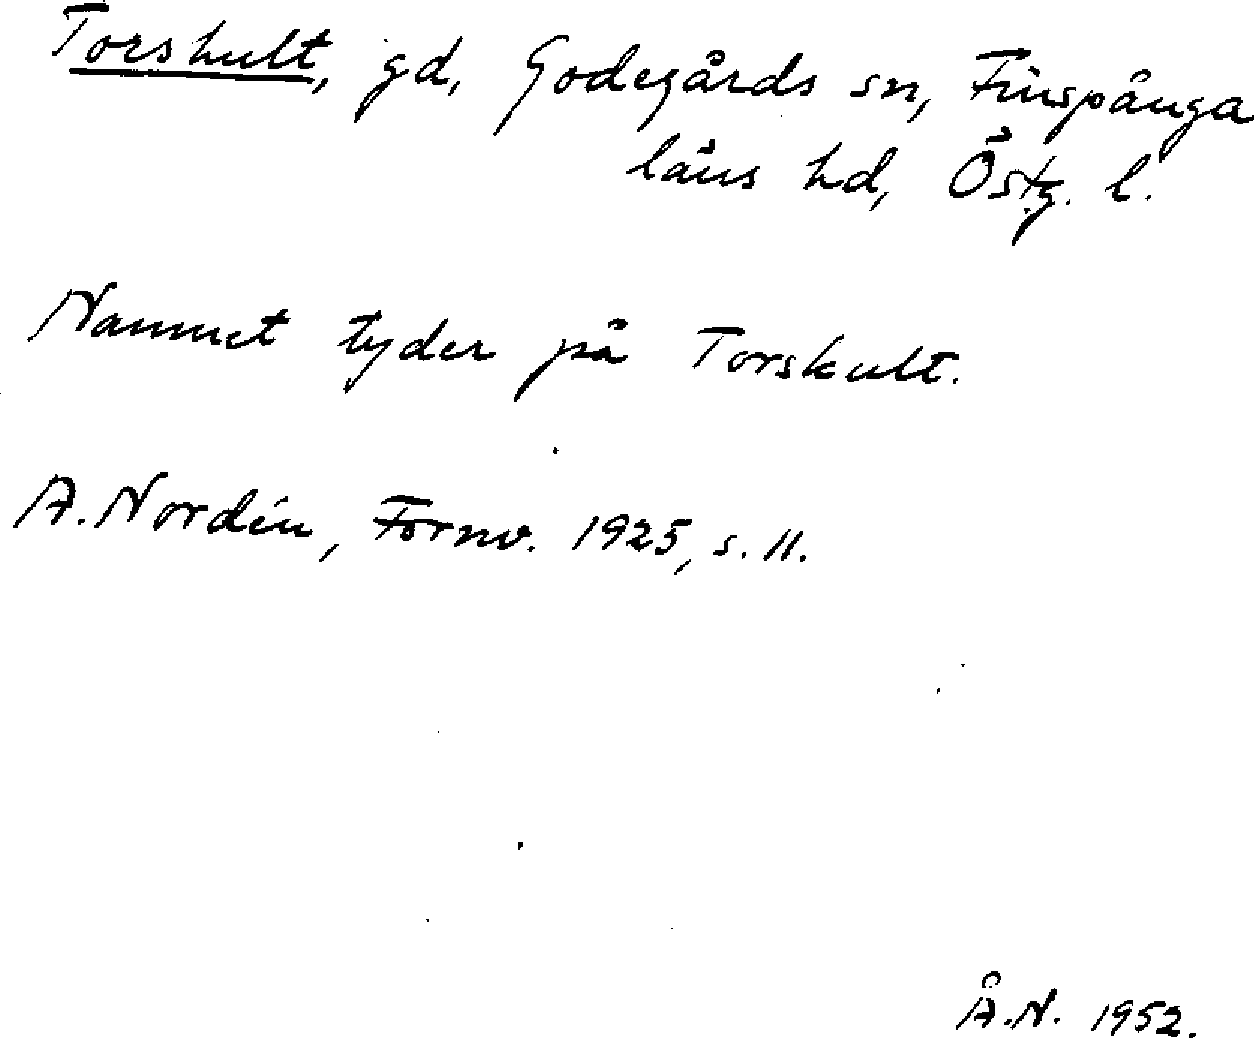 Torshult, gd, Godegårds sn, Finspånga
läns hd, Östg. l.
Namnet tyder på Torskult.
A. Nordén, Fornv. 1925, s. 11.
Å.N. 1952.